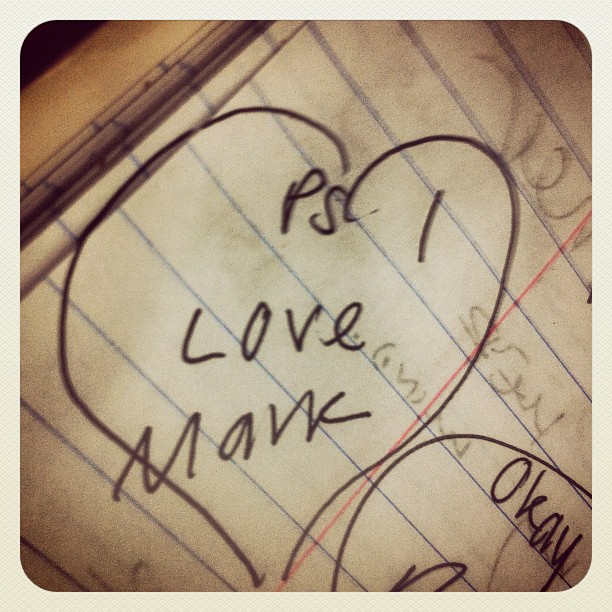 Ps I
Love
Mark
Okay